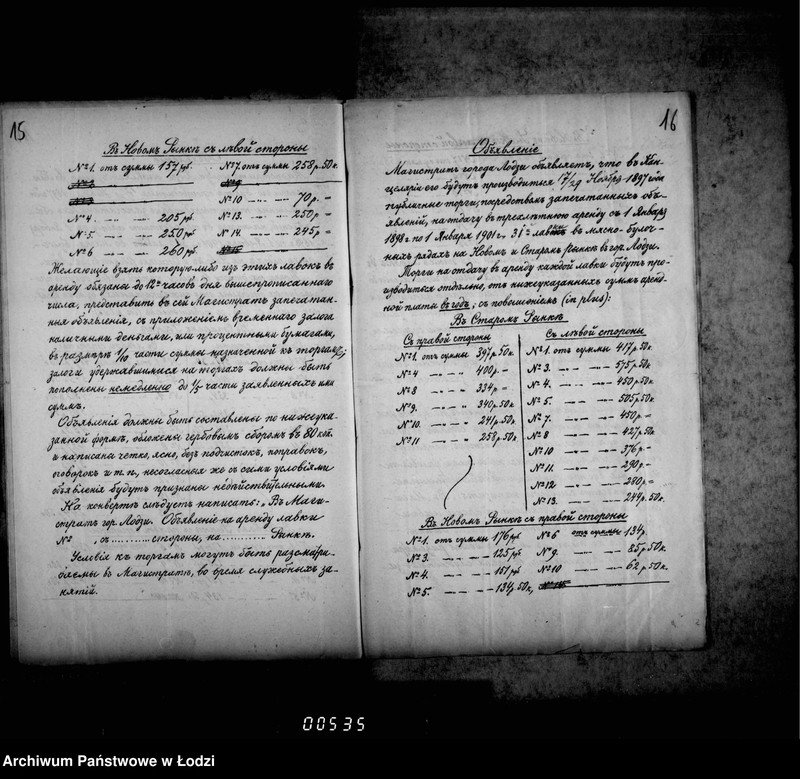 15
Въ Новомъ Рынкѣ съ лѣвой стороны
№ 1. отъ суммы 157 руб. № 7. отъ суммы 258 р. 50 к.
№ 10 — — 70 р. =
№ 4. — — 205 руб. № 13. — — 250 р =
№ 5. — — 250 руб № 14. — — 245 р =
№ 6 — — 260 руб
Желающіе взять которую-либо изъ этихъ лавокъ въ
аренду обязаны до 12 часовъ дня вышепрописаннаго
числа, представить въ сей Магистратъ запечатан-
ныя объявленія, съ приложеніемъ временнаго залога
наличными деньгами, или процентными бумагами,
въ размѣрѣ 1/10 части суммы назначенной къ торгамъ;
залоги удержавшихся на торгахъ должны быть
пополнены немедленно до 1/5 части заявленныхъ ими
суммъ.
Объявленія должны быть составлены по нижеука-
занной формѣ, обложены гербовымъ сборомъ въ 80 коп.
и написаны четко, ясно, безъ подчистокъ, поправокъ,
оговорокъ и т. п., несогласныя же съ сими условіями
объявленія будутъ признаны недѣйствительными.
На конвертѣ слѣдуетъ написать: „Въ Маги-
стратъ гор. Лодзи. Объявленіе на аренду лавки
№ , съ .......... стороны, на .......... Рынкѣ.
Условія къ торгамъ могутъ быть разсматри-
ваемы въ Магистратѣ, во время служебныхъ за-
нятій.
16
Объявленіе
Магистратъ города Лодзи объявляетъ, что въ Кан-
целяріи его будутъ производиться 17/29 Ноября 1897 года
публичные торги, посредствомъ запечатанныхъ объ-
явленій, на отдачу въ трехлѣтнюю аренду съ 1 Января
1898 г. по 1 Января 1901 г. 31 лавки въ мясно-булоч-
ныхъ рядахъ на Новомъ и Старомъ Рынкѣ въ гор. Лодзи.
Торги на отдачу въ аренду каждой лавки будутъ про-
изводиться отдѣльно, отъ нижеуказанныхъ суммъ аренд-
ной платы въ годъ, съ повышеніемъ (in plus):
Въ Старомъ Рынкѣ
Съ правой стороны
№ 1. отъ суммы 397 р. 50 к.
№ 4 — — 400 р. =
№ 8 — — 334 р =
№ 9. — — 340 р. 50 к.
№ 10. — — 241 р. 50 к.
№ 11 — — 258 р. 50 к.
Съ лѣвой стороны
№ 1. отъ суммы 417 р. 50 к.
№ 3. — — 575 р. 50 к.
№ 4. — — 450 р. 50 к.
№ 5. — — 505 р. 50 к.
№ 7. — — 450 р. =
№ 8 — — 427 р. 50 к.
№ 10 — — 376 р. -
№ 11. — — 290 р. -
№ 12 — — 280 р. =
№ 13. — — 244 р. 50 к.
Въ Новомъ Рынкѣ съ правой стороны
№ 1. отъ суммы 176 руб № 6 отъ суммы 134 р.
№ 3. — — 125 руб № 9. — — 85 р. 50 к.
№ 4. — — 151 руб № 10 — — 62 р. 50 к.
№ 5. — — 134 р. 50 к.
00535
Archiwum Państwowe w Łodzi